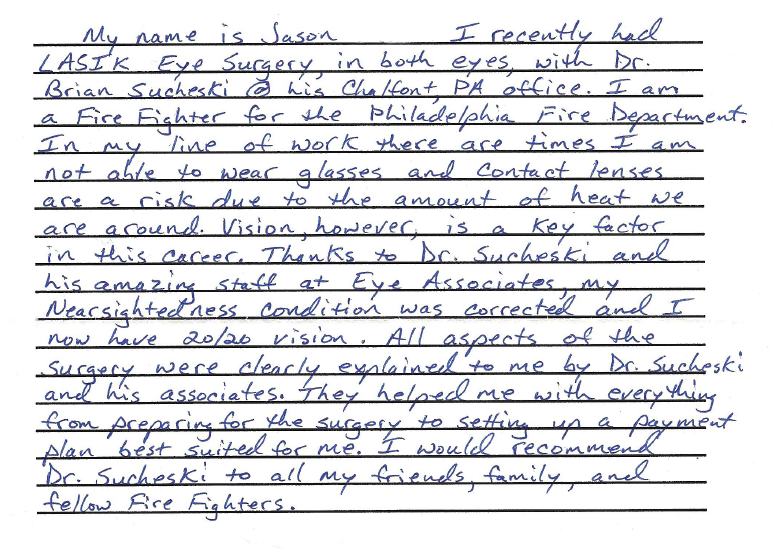 My name is Jason I recently had
LASIK Eye Surgery, in both eyes, with Dr.
Brian Sucheski @ his Chalfont, PA office. I am
a Fire Fighter for the Philadelphia Fire Department.
In my line of work there are times I am
not able to wear glasses and contact lenses
are a risk due to the amount of heat we
are around. Vision, however, is a key factor
in this career. Thanks to Dr. Sucheski and
his amazing staff at Eye Associates, my
Nearsightedness condition was corrected and I
now have 20/20 vision. All aspects of the
surgery were clearly explained to me by Dr. Sucheski
and his associates. They helped me with everything
from preparing for the surgery to setting up a payment
plan best suited for me. I would recommend
Dr. Sucheski to all my friends, family, and
fellow Fire Fighters.